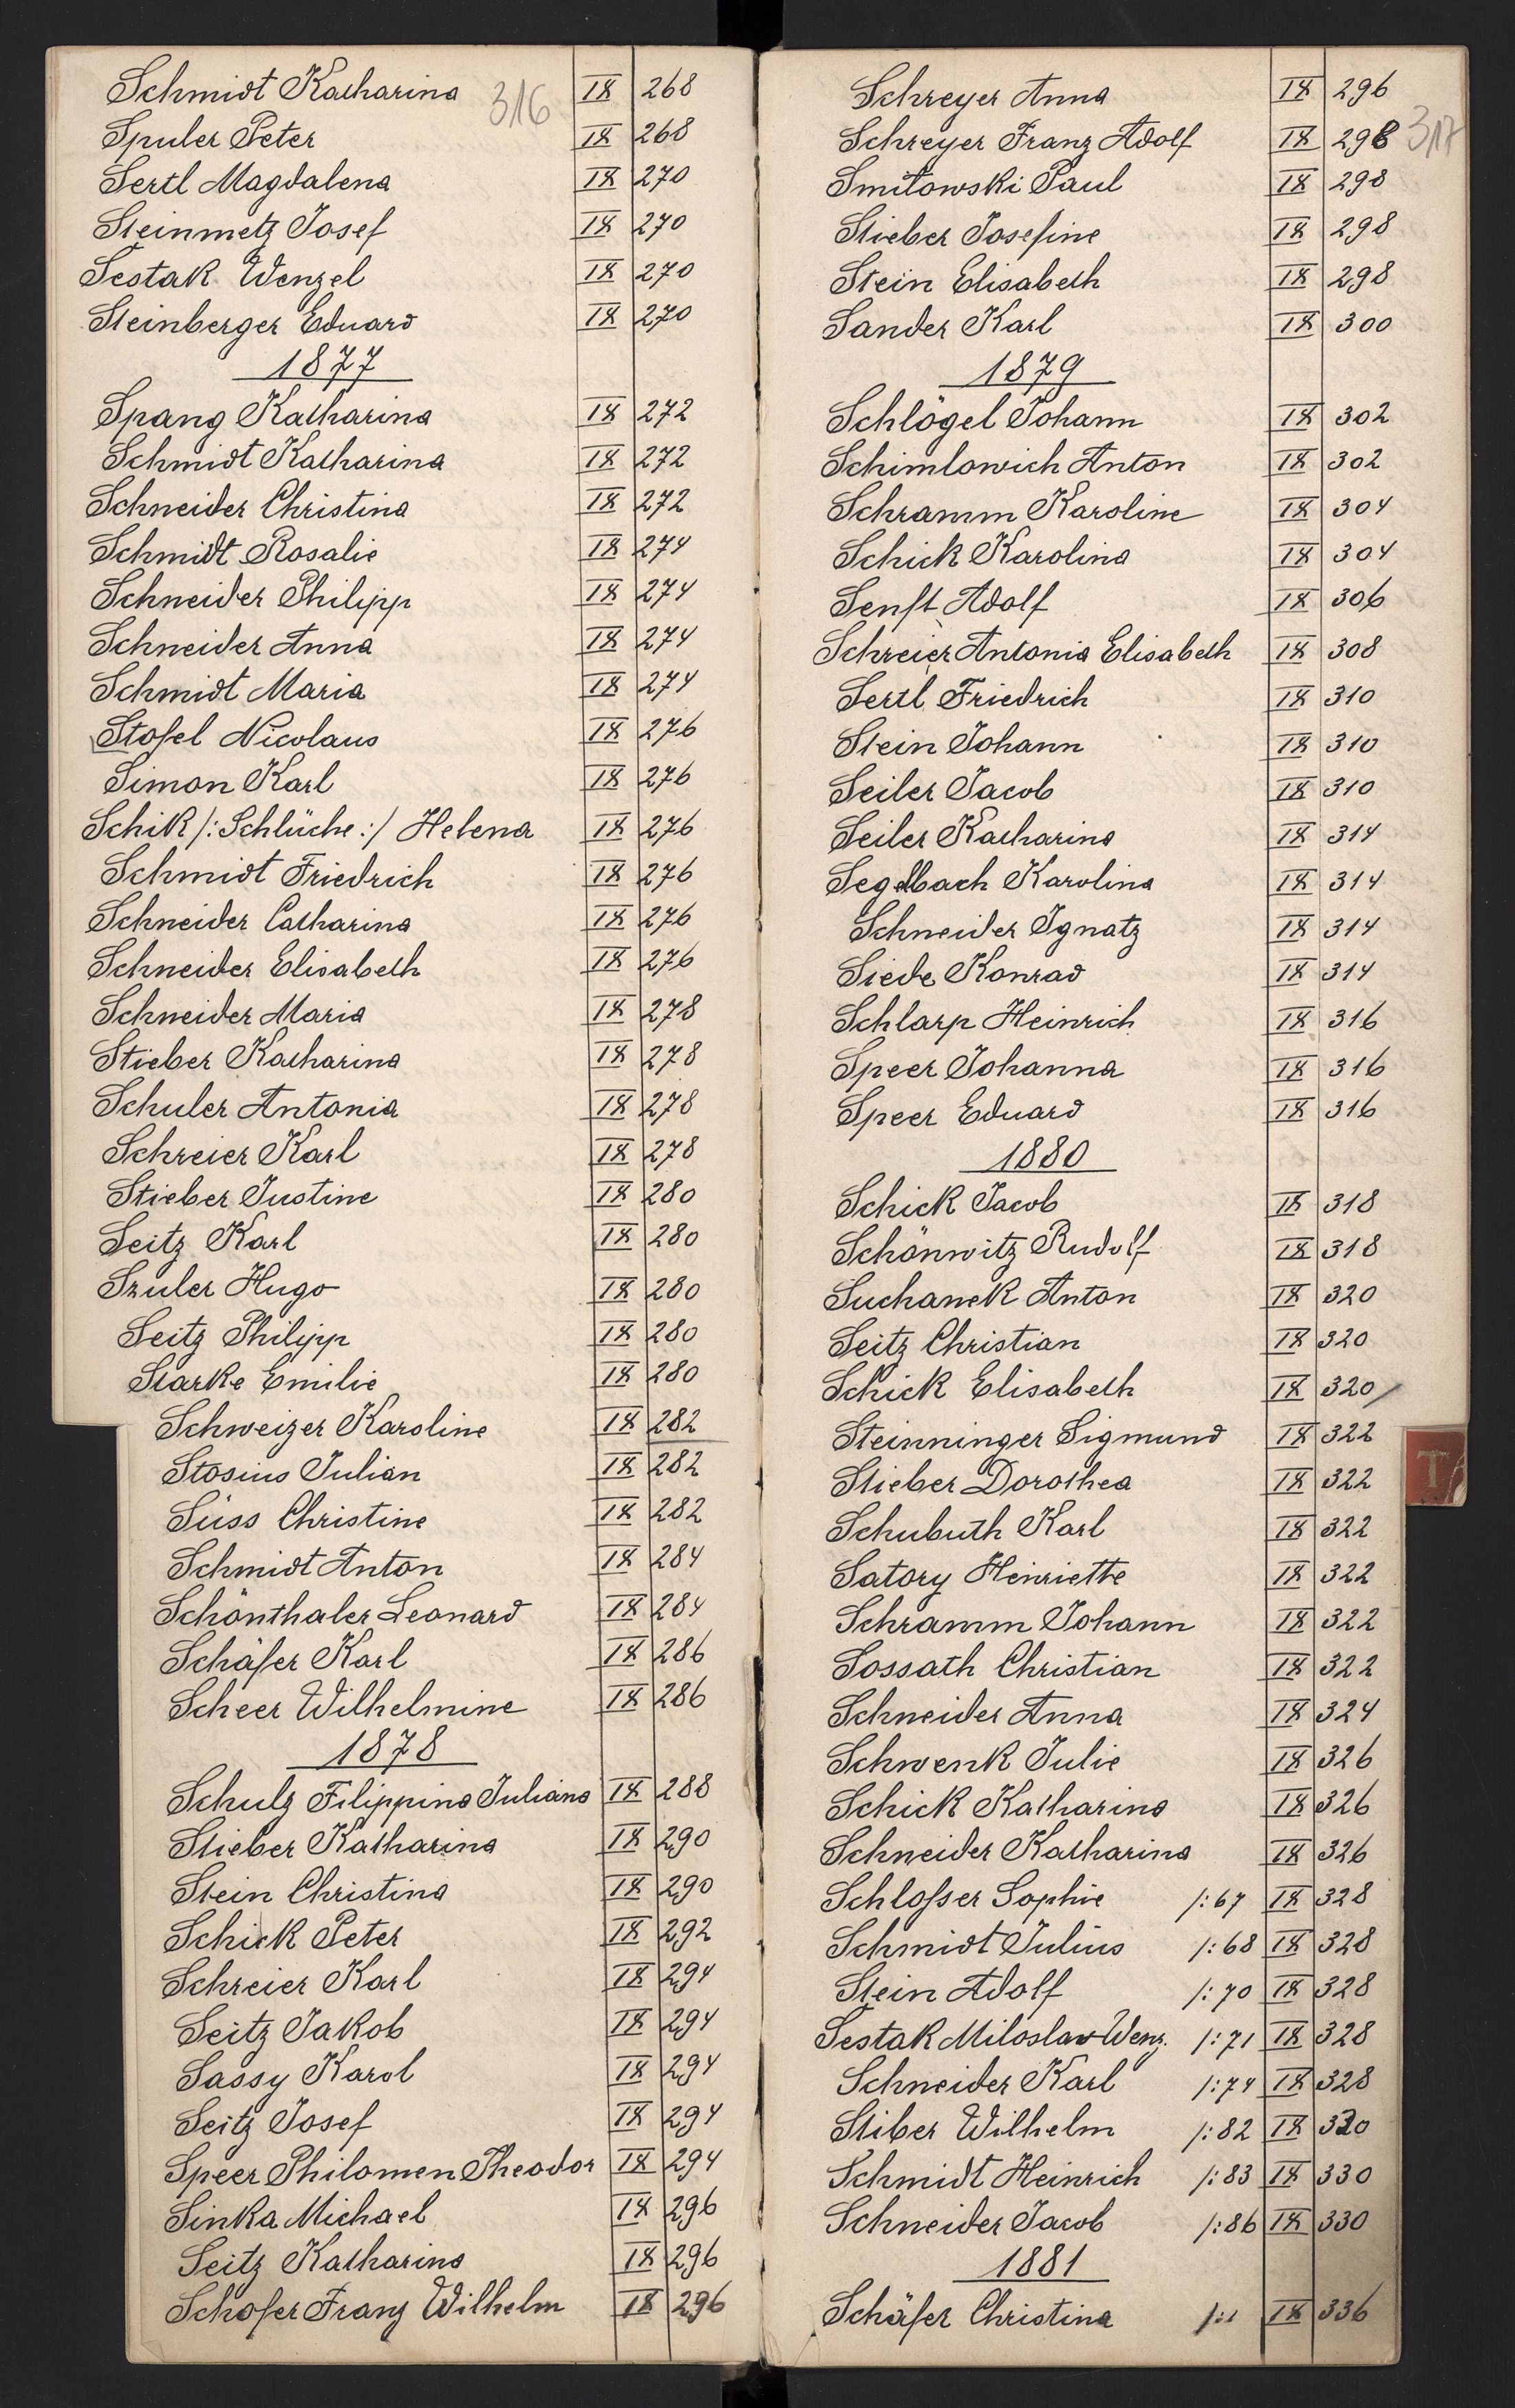 316
Schmidt Katharina IX 268
Spuler Peter IX 268
Sertl Magdalena IX 270
Steinmetz Josef IX 270
Šestak Wenzel IX 270
Steinberger Eduard IX 270
1877
Spang Katharina IX 272
Schmidt Katharina IX 272
Schneider Christina IX 272
Schmidt Rosalie IX 274
Schneider Philipp IX 274
Schneider Anna IX 274
Schmidt Maria IX 274
Stofel Nicolaus IX 276
Simon Karl IX 276
Schik /: Schlüche :/ Helena IX 276
Schmidt Friedrich IX 276
Schneider Catharina IX 276
Schneider Elisabeth IX 276
Schneider Maria IX 278
Stieber Katharina IX 278
Schuler Antonia IX 278
Schreier Karl IX 278
Stieber Justine IX 280
Seitz Karl IX 280
Szuler Hugo IX 280
Seitz Philipp IX 280
Starke Emilie IX 280
Schweizer Karoline IX 282
Stosius Julian IX 282
Süss Christine IX 282
Schmidt Anton IX 284
Schönthaler Leonard IX 284
Schäfer Karl IX 286
Scheer Wilhelmine IX 286
1878
Schulz Filippina Juliana IX 288
Stieber Katharina IX 290
Stein Christina IX 290
Schick Peter IX 292
Schreier Karl IX 294
Seitz Jakob IX 294
Sassy Karol IX 294
Seitz Josef IX 294
Speer Philomen Theodor IX 294
Sinka Michael IX 296
Seitz Katharina IX 296
Schofer Franz Wilhelm IX 296
317
Schreyer Anna IX 296
Schreyer Franz Adolf IX 298
Smitowski Paul IX 298
Stieber Josefine IX 298
Stein Elisabeth IX 298
Sander Karl IX 300
1879
Schlögel Johann IX 302
Schimlowich Anton IX 302
Schramm Karoline IX 304
Schick Karolina IX 304
Senft Adolf IX 306
Schreier Antonia Elisabeth IX 308
Sertl Friedrich IX 310
Stein Johann IX 310
Seiler Jacob IX 310
Seiler Katharina IX 314
Segelbach Karolina IX 314
Schneider Ignatz IX 314
Siede Konrad IX 314
Schlarp Heinrich IX 316
Speer Johanna IX 316
Speer Eduard IX 316
1880
Schick Jacob IX 318
Schönwitz Rudolf IX 318
Suchanek Anton IX 320
Seitz Christian IX 320
Schick Elisabeth IX 320
Steinninger Sigmund IX 322
T
Stieber Dorothea IX 322
Schubuth Karl IX 322
Satory Henriette IX 322
Schramm Johann IX 322
Sossath Christian IX 322
Schneider Anna IX 324
Schwenk Julie IX 326
Schick Katharina IX 326
Schneider Katharina IX 326
Schlosser Sophie /: 67 IX 328
Schmidt Julius /: 68 IX 328
Stein Adolf /: 70 IX 328
Šestak Miloslav Wenz. /: 71 IX 328
Schneider Karl /: 74 IX 328
Stiber Wilhelm /: 82 IX 330
Schmidt Heinrich /: 83 IX 330
Schneider Jacob /: 86 IX 330
1881
Schäfer Christina /: 1 IX 336